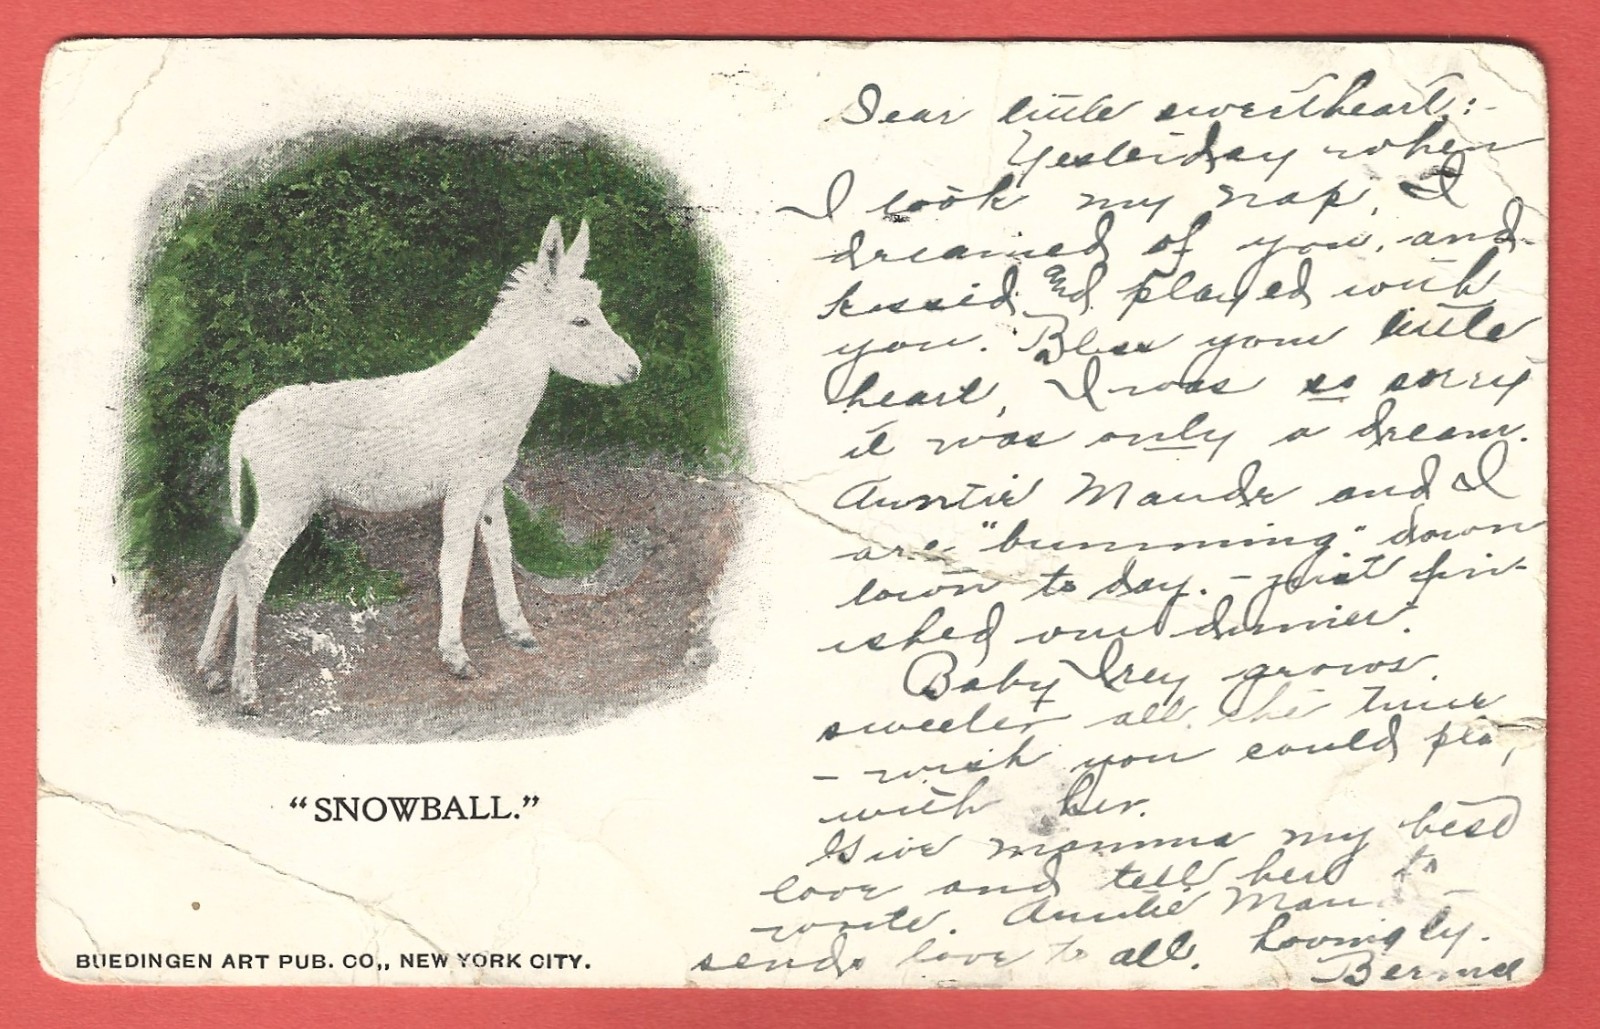 "SNOWBALL."
BUEDINGEN ART PUB. CO., NEW YORK CITY.
Dear little sweetheart:-
Yesterday when
I took my nap, I
dreamed of you, and
kissed and played with
you. Bless your little
heart, I was so sorry
it was only a dream.
Auntie Maude and I
are "bumming" down
town to day. - just fin-
ished our dinner.
Baby grows
sweeter all the time
- wish you could play
with her.
Give momma my best
love and tell her to
write. Auntie
sends love to all. Lovingly.